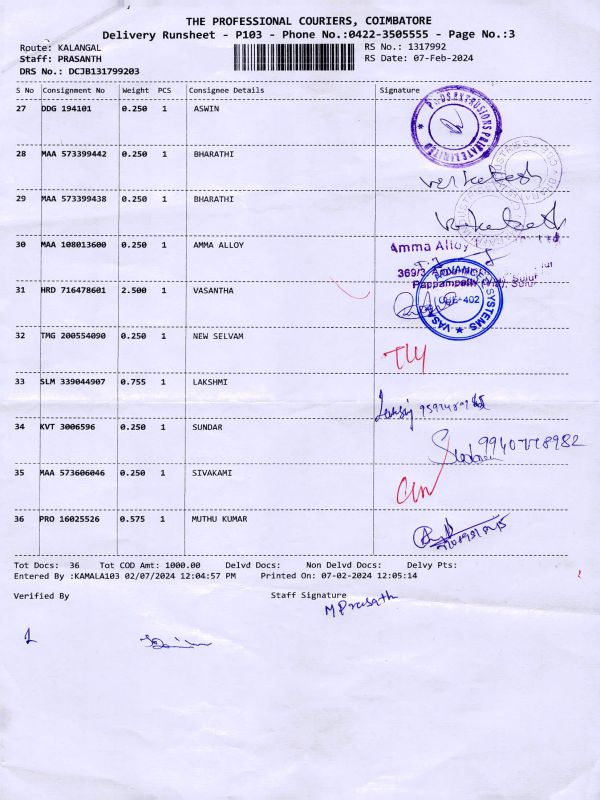 THE PROFESSIONAL COURIERS, COIMBATORE
Delivery Runsheet - P103 - Phone No.:0422-3505555 - Page No.:3
Route: KALANGAL
RS No.: 1317992
Staff: PRASANTH
RS Date: 07-Feb-2024
DRS No.: DCJB131799203
S No Consignment No Weight PCS Consignee Details Signature
27 DDG 194101 0.250 1 ASWIN
28 MAA 573399442 0.250 1 BHARATHI
Venkatesh
29 MAA 573399438 0.250 1 BHARATHI
Venkatesh
30 MAA 108013600 0.250 1 AMMA ALLOY Amma Alloy
31 HRD 716478601 2.500 1 VASANTHA
32 TMG 200554090 0.250 1 NEW SELVAM
33 SLM 339044907 0.755 1 LAKSHMI
34 KVT 3006596 0.250 1 SUNDAR
35 MAA 573606046 0.250 1 SIVAKAMI
36 PRO 16025526 0.575 1 MUTHU KUMAR
Tot Docs: 36 Tot COD Amt: 1000.00 Delvd Docs: Non Delvd Docs: Delvy Pts:
Entered By :KAMALA103 02/07/2024 12:04:57 PM Printed On: 07-02-2024 12:05:14
Verified By Staff Signature
M Prasath